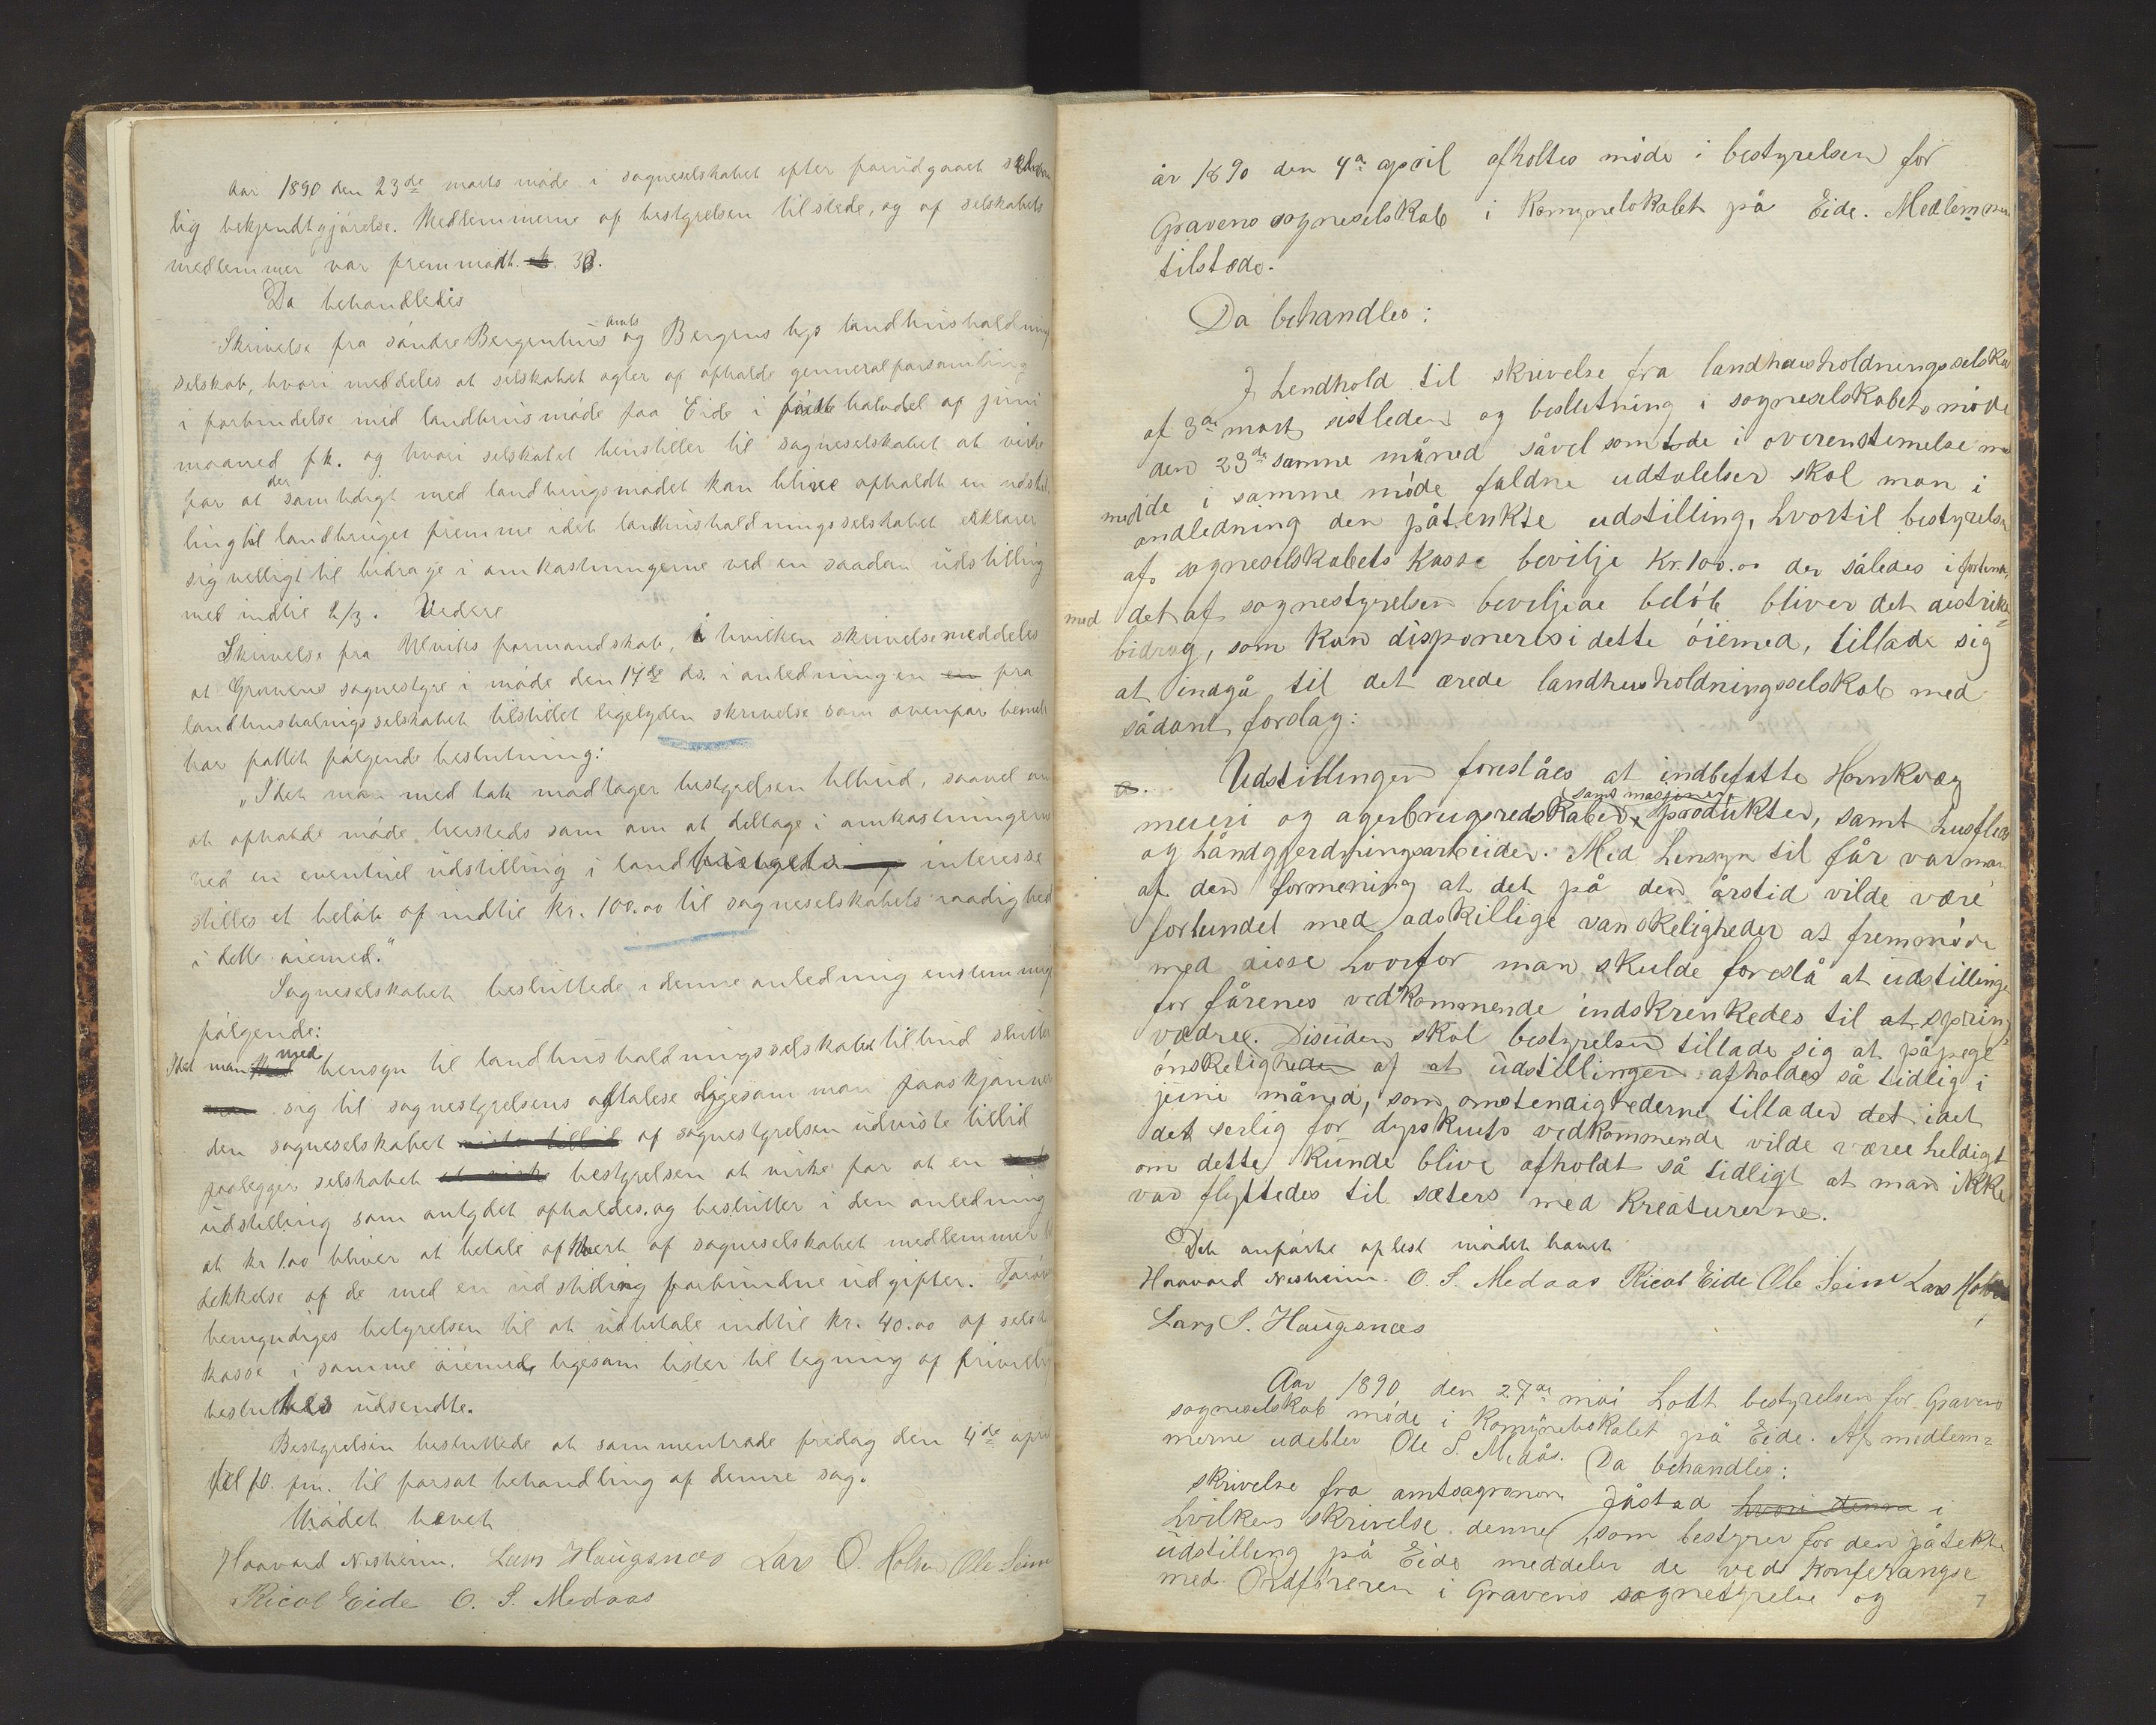 Aar 1890 den 23de marts møde i sogneselskabet efter forudgaaet sedvan
lig bekjendtgjørelse. Medlemmerne af bestyrelsen tilstede, og af selskabets
medlemmer var fremmødt 33.
Da behandledes
Skrivelse fra søndre Bergenhus amts og Bergens bys landhusholdnings
selskab, hvori meddeles at selskabet agter at afholde genneralforsamling
i forbindelse med landbrusmøde paa Eide i første halvdel af juni
maaned f.k. og hvori selskabet henstiller til sogneselskabet at virke
for at der samtidigt med landbrugsmødet kan blive afholdt en udstil
ling til landbruget fremme idet landhusholdningsselskabet erklærer
sig velligt til bidrage i omkostningerne ved en saadan udstilling
med indtil 2/3. Videre
Skrivelse fra Ulviks formandskab, i hvilken skrivelse meddeles
at Gravens sognestyre i møde den 17de ds. i anledningen en fra
landhusholnigsselskabet tilstillet ligelyden skrivelse som ovenfor bemelt
har fattet følgende beslutning:
"Idet man med tak modtager bestyrelsen tilbud, saavel om
at afholde møde hersteds som om at deltage i omkostningerne
ved en eventuel udstilling i landbrugets interesse
stilles et beløb af indtil kr. 100.00 til sogneselskabets raadighed
i dette øiemed."
Sogneselskabet besluttede i denne anledning enstemmigt
følgende:
Idet man med hensyn til landhusholdningsselskabet tilbud slutter
sig til sognestyrelsens udtalelse ligesom man paaskjønner
den sogneselskabet af sognestyrelsen udviste tillid
paalegger selskabet bestyrelsen at virke for at en
udstilling som antydet afholdes. og beslutter i den anledning
at kr 1.00 bliver at betale af hvert af sogneselskabet medlemmer til
dekkelse af de med en udstilling forbundne udgifter.
bemyndiges betyrelsen til at udbetale indtil kr. 40.00 af selsk
kasse i samme øiemed, ligesom lister til tegning af frivillig
besluttes udsendte.
Bestyrelsen besluttede at sammentræde fredag den 4de april
kl 10. fm. til forsat behandling af denne sag.
Mødet hævet
Haavard Nesheim. Lars Haugsnæs Lars O. Holven Ole Seim
Ricol Eide O. S. Medaas
år 1890 den 4de april afholtes møde i bestyrelsen for
Gravens sogneselskab i Komynelokalet på Eide. Medlemmer
tilstede.
Da behandles:
I hendhold til skrivelse fra landhusholdningsselskab
af 3de mars sistleden og beslutning i sogneselskabets møde
den 23de samme måned såvel som de i overenstemelse med
med de i samme møde faldne udtalelser skal man i
andledning den påtenkte udstilling, hvortil bestyrelse
af sogneselskabets Kasse bevilje Kr. 100.00 der således i forbin.
med det af sognestyrelsen beviljede beløb bliver det distrikts
bidrag, som Kan disponeres i dette øiemed, tillade sig
at indgå til det ærede landhusholdningsselskab med
sådant forslag:
a. Udstillingen foreslåes at indbefatte Hornkvæg
meieri og agerbrugsredskaber (samt masjiner) produkter, samt husflids
og håndgjerdningsarbeider. Med hensyn til får var man
af den formening at det på den årstid vilde være
forbundet med adskillige vanskeligheder at fremmøde
med disse hvorfor man skulde foreslå at udstillinge
for fårenes vedkommende indskrenkedes til at spring
vædree. Desuden skal bestyrelsen tillade sig at påpege
ønskeligheden af at udstillingen afholdes så tidlig i
juni måned, som omstendighederne tillader det idet
det serlig for dyrskuets vedkommende vilde være heldigt
om dette kunde blive afholdt så tidligt at man ikke
var flyttedes til sæters med Kreaturerne.
Det anførte oplest mødet hævet
Haavard Nesheim. O. S. Medaas Ricol Eide Ole Seim Lars Holven
Lars S. Haugsnæs
Aar 1890 den 27de mai holdt bestyrelsen for Gravens
sogneselskab møde i Komynelokalet på Eide. Af medlem=
merne udeblev Ole S. Medås. Da behandles:
skrivelse fra amtsagronom Jåstad hvori denne i
hvilken skrivelse denne, som bestyrer for den påtekte
udstilling på Eide meddeler de ved Konferangse
med Ordføreren i Gravens sognestyrelse og
7